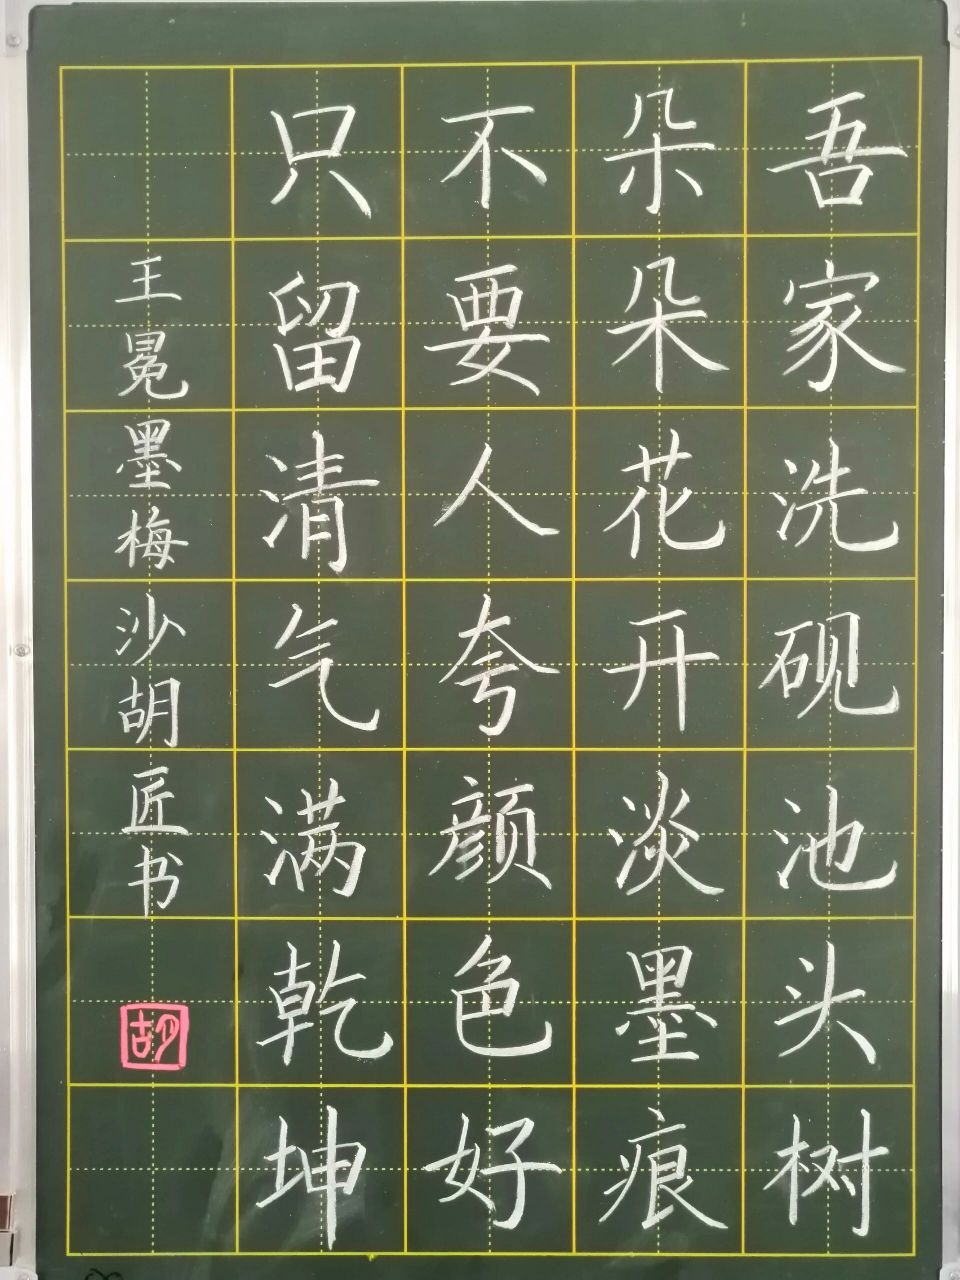 吾家洗砚池头树
朵朵花开淡墨痕
不要人夸颜色好
只留清气满乾坤
王冕墨梅沙胡匠书
胡